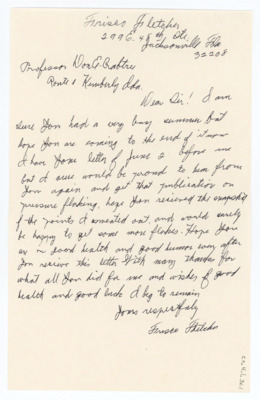 Ferises Fletcher
299 E. 48th St.
Jacksonville Fla
32208
Professor Don G. Crabtree
Route 1 Kimberly Ida.
Dear Sir! I am
sure You had a very busy summer but
hope You are coming to the end of it now
I have Your letter of June 2 before me
but I sure would be proud to hear from
You again and get that publication on
pressure flaking, hope You received the snapshot
of the points I sorted out, and would surely
be happy to get some more flakes. Hope You
are in good health and good humor way after
You recieve this letter With many thanks for
what all You did for me and wishes of good
health and good luck I beg to remain
Yours respectfuly
Ferises Fletcher